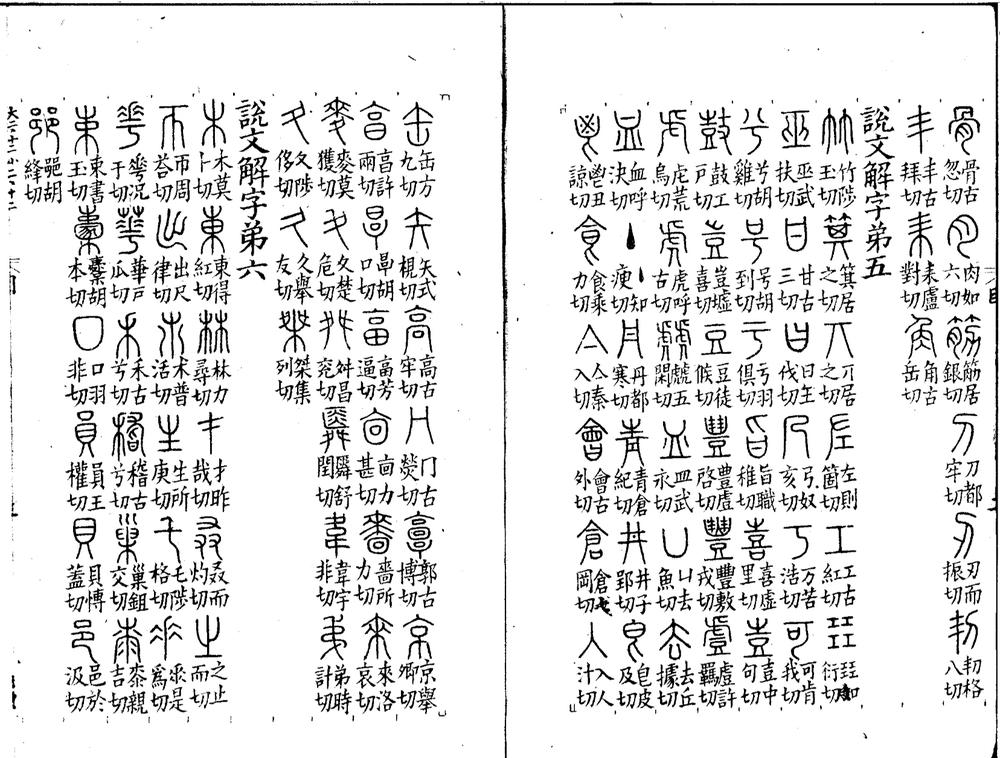 骨骨古忽切 肉肉如六切 筋筋居銀切 刀刀都牢切 刃刃而振切 㓞㓞格八切
丯丯古拜切 耒耒盧對切 角角古岳切
說文解字弟五
竹竹陟玉切 箕箕居之切 丌丌居之切 左左則箇切 工工古紅切 㠭㠭知衍切
巫巫武扶切 甘甘古三切 曰曰王伐切 乃乃奴亥切 丂丂苦浩切 可可肯我切
兮兮胡雞切 号号胡到切 亏亏羽俱切 旨旨職稚切 喜喜虛里切 壴壴中句切
鼓鼓工戶切 豈豈墟喜切 豆豆徒候切 豊豊盧啓切 豐豐敷戎切 䖒䖒許羈切
虍虍荒烏切 虎虎呼古切 虤虤五閑切 皿皿武永切 凵凵去魚切 去去丘據切
血血呼決切 丶丶知庾切 丹丹都寒切 青青倉切 井井子郢切 皀皀皮及切
鬯鬯丑諒切 食食乘力切 亼亼秦入切 會會古外切 倉倉七岡切 入入人汁切
缶缶方九切 矢矢式視切 高高古牢切 冂冂古熒切 𩫏郭古博切 京京舉卿切
亯亯許兩切 㫗㫗胡口切 畗畗芳逼切 㐭㐭力甚切 嗇嗇所力切 來來洛哀切
麥麥莫獲切 夊夊楚危切 舛舛昌兖切 舜舜舒閏切 韋韋宇非切 弟弟特計切
夂夂陟侈切 久久舉友切 桀桀集列切
說文解字弟六
木木莫卜切 東東得紅切 林林力尋切 才才昨哉切 叒叒而灼切 之之止而切
帀帀周荅切 出出尺律切 𣎵𣎵普活切 生生所庚切 乇乇陟格切 𠂹𠂹是爲切
𠌶𠌶況于切 華華戶瓜切 𥝌禾古兮切 稽稽古兮切 巢巢鉏交切 桼桼親吉切
束束書玉切 㯻㯻胡本切 囗囗羽非切 員員王權切 貝貝博蓋切 邑邑於汲切
𨛜𨛜胡絳切